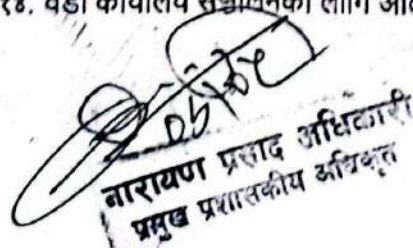 १४. वडा कार्यालय सञ्चालनका लागि
नारायण प्रसाद अधिकारी
प्रमुख प्रशासकीय अधिकृत